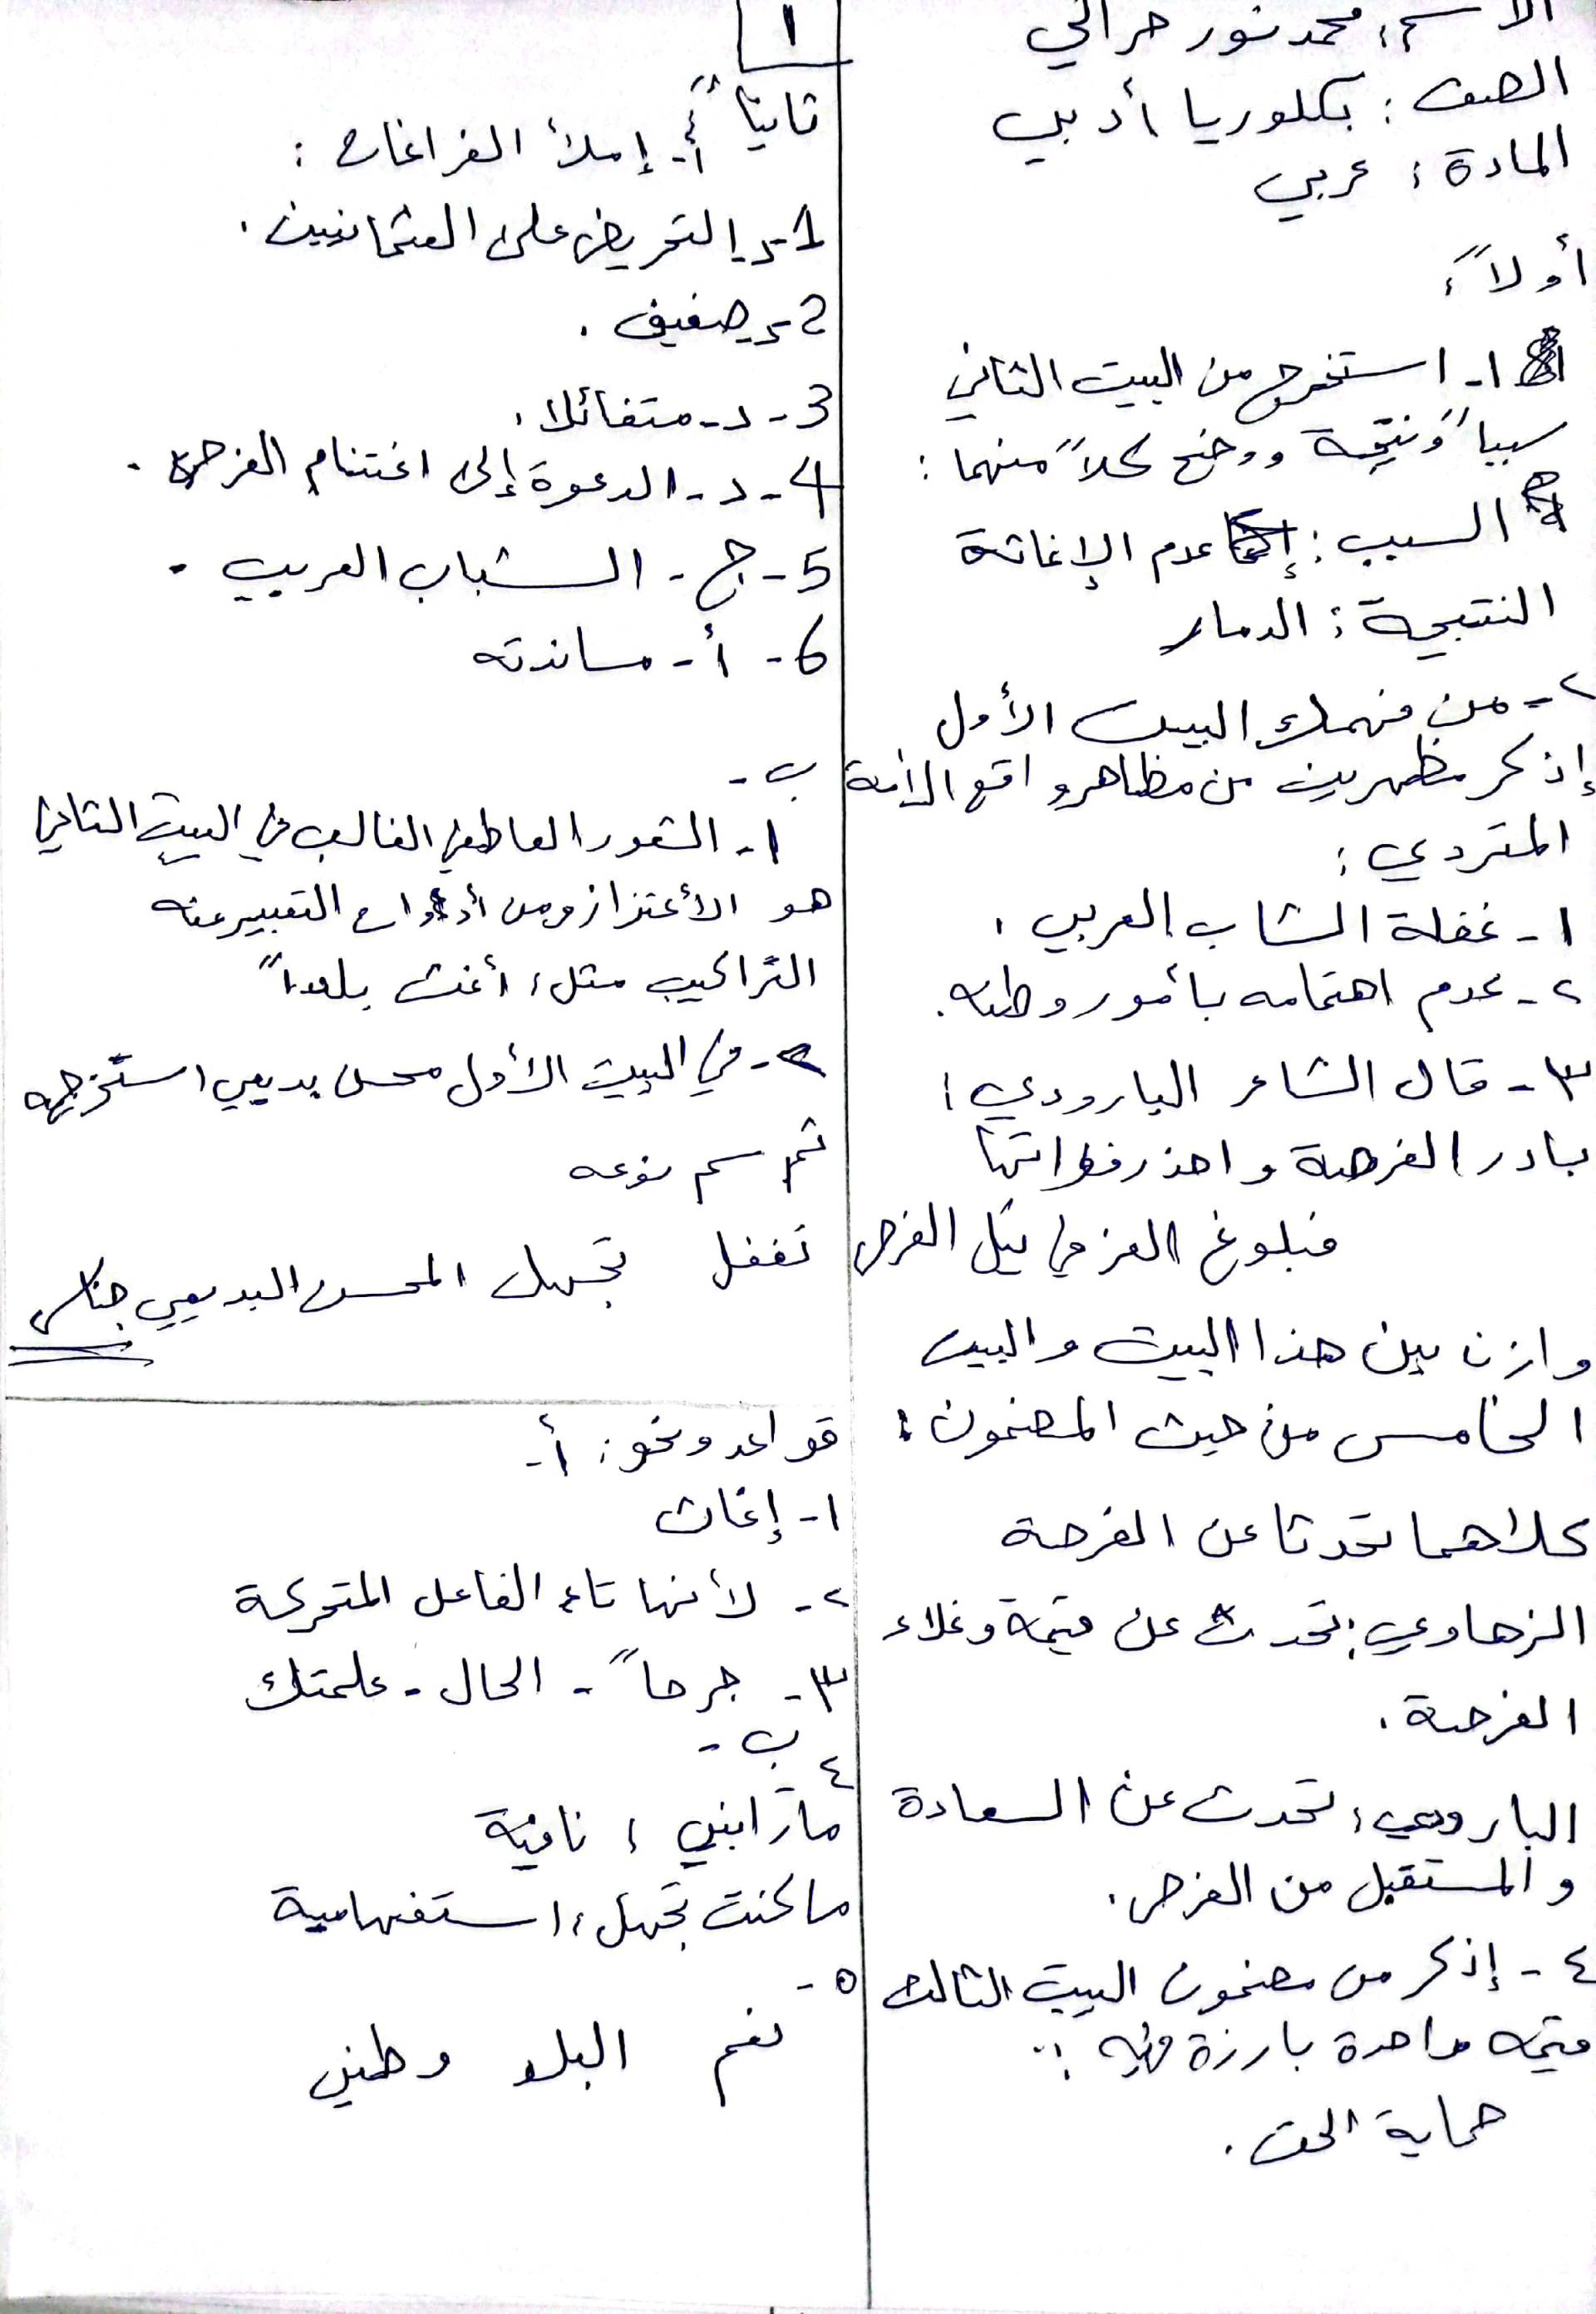 الاسم: محمد نور حراكي
الصف: بكلوريا أدبي
المادة: عربي
أولاً:
١- استخرج من البيت الثاني
سبباً ونتيجة ووضح كلاً منهما:
السبب: عدم الإغاثة
النتيجة: الدمار
٢- من فهمك البيت الأول
إذكر مظهرين من مظاهر واقع الأمة
المتردي:
١- غفلة الشاب العربي.
٢- عدم اهتمامه بأمور وطنه.
٣- قال الشاعر البارودي:
بادر الفرصة واحذر فواتها
فبلوغ العز في نيل الفرص
وازن بين هذا البيت والبيت
الخامس من حيث المضمون:
كلاهما تحدثا عن الفرصة
الزهاوي: تحدث عن قيمة وغلاء
الفرصة.
البارودي: تحدث عن السعادة
والمستقبل من الفرص.
٤- إذكر من مضمون البيت الثالث
قيمة واحدة بارزة فيه:
حماية الحق.
١
ثانياً: أ- إملأ الفراغات:
1- د- التحريض على العثمانيين.
2- د- ضعيف.
3- د- متفائلا.
4- د- الدعوة إلى اغتنام الفرص.
5- ج- الشباب العربي.
6- أ- مساندته
ب-
١- الشعور العاطفي الغالب في البيت الثاني
هو الأعتزاز ومن أدوات التعبير عنه
التراكيب مثل: أغث بلداً
٢- في البيت الأول محسن بديعي استخرجه
ثم سم نوعه
تغفل تجهل المحسن البديعي جناس
قواعد ونحو: أ-
١- إغاث
٢- لأنها تاء الفاعل المتحركة
٣- جرحاً - الحال - علمتك
ب-
٤
ما ترابني: نافية
ما كنت تجهل: استفهامية
٥-
نعم البلد وطني